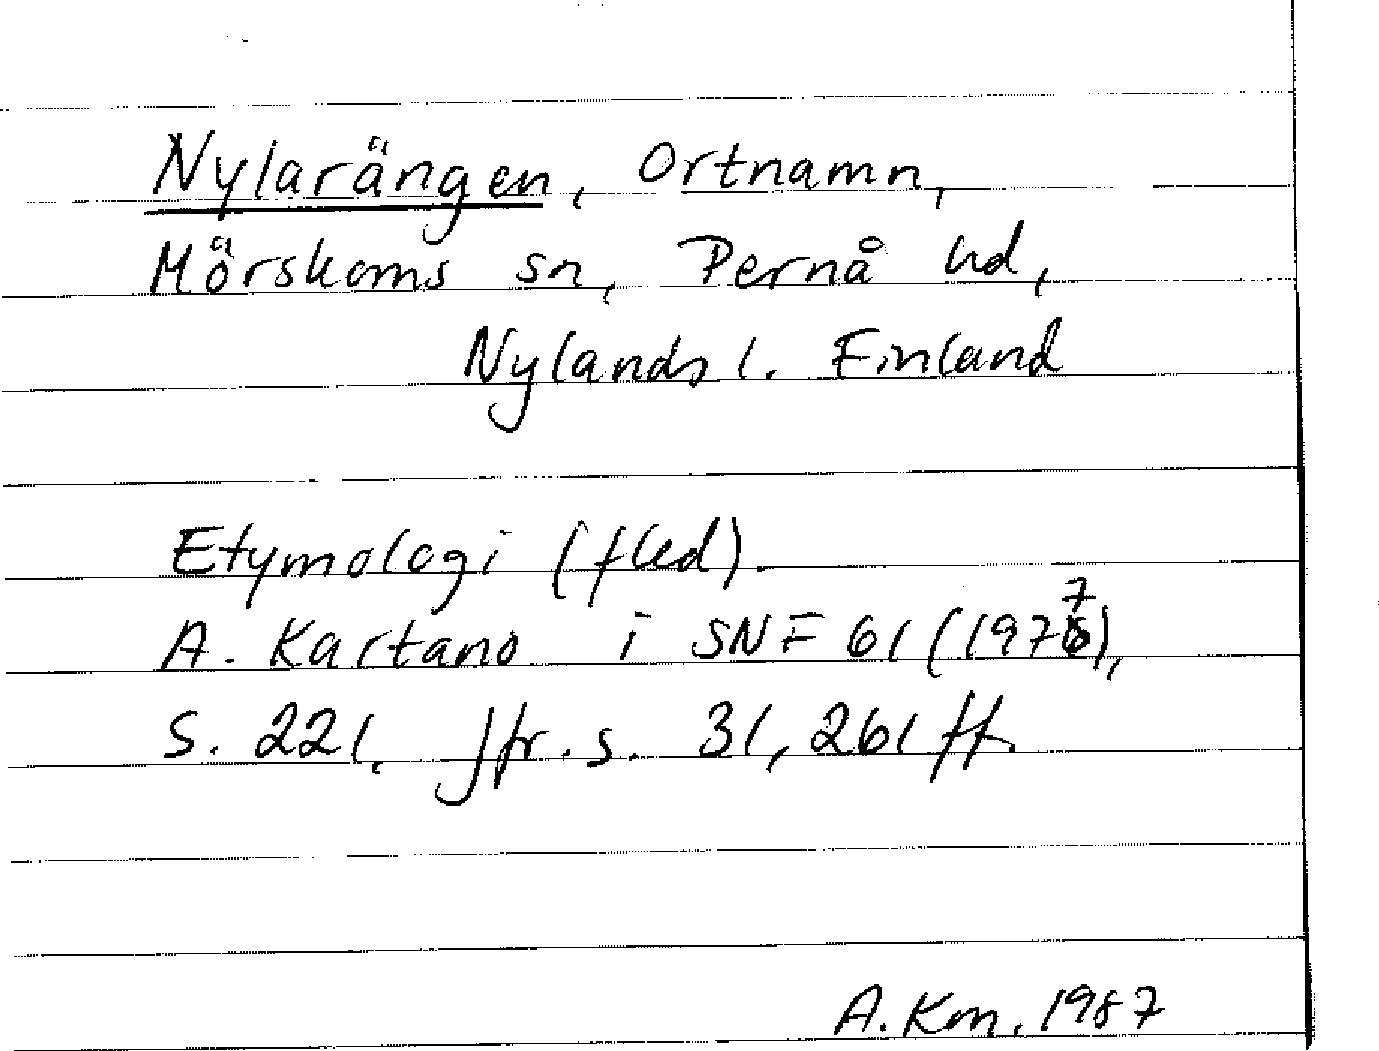 Nylarängen, Ortnamn,
Mörskoms sn, Pernå hd,
Nylands l. Finland
Etymologi (fled).
A. Kartano i SNF 61 (1977),
s. 221. Jfr. s. 31, 261 ff.
A. Km. 1987